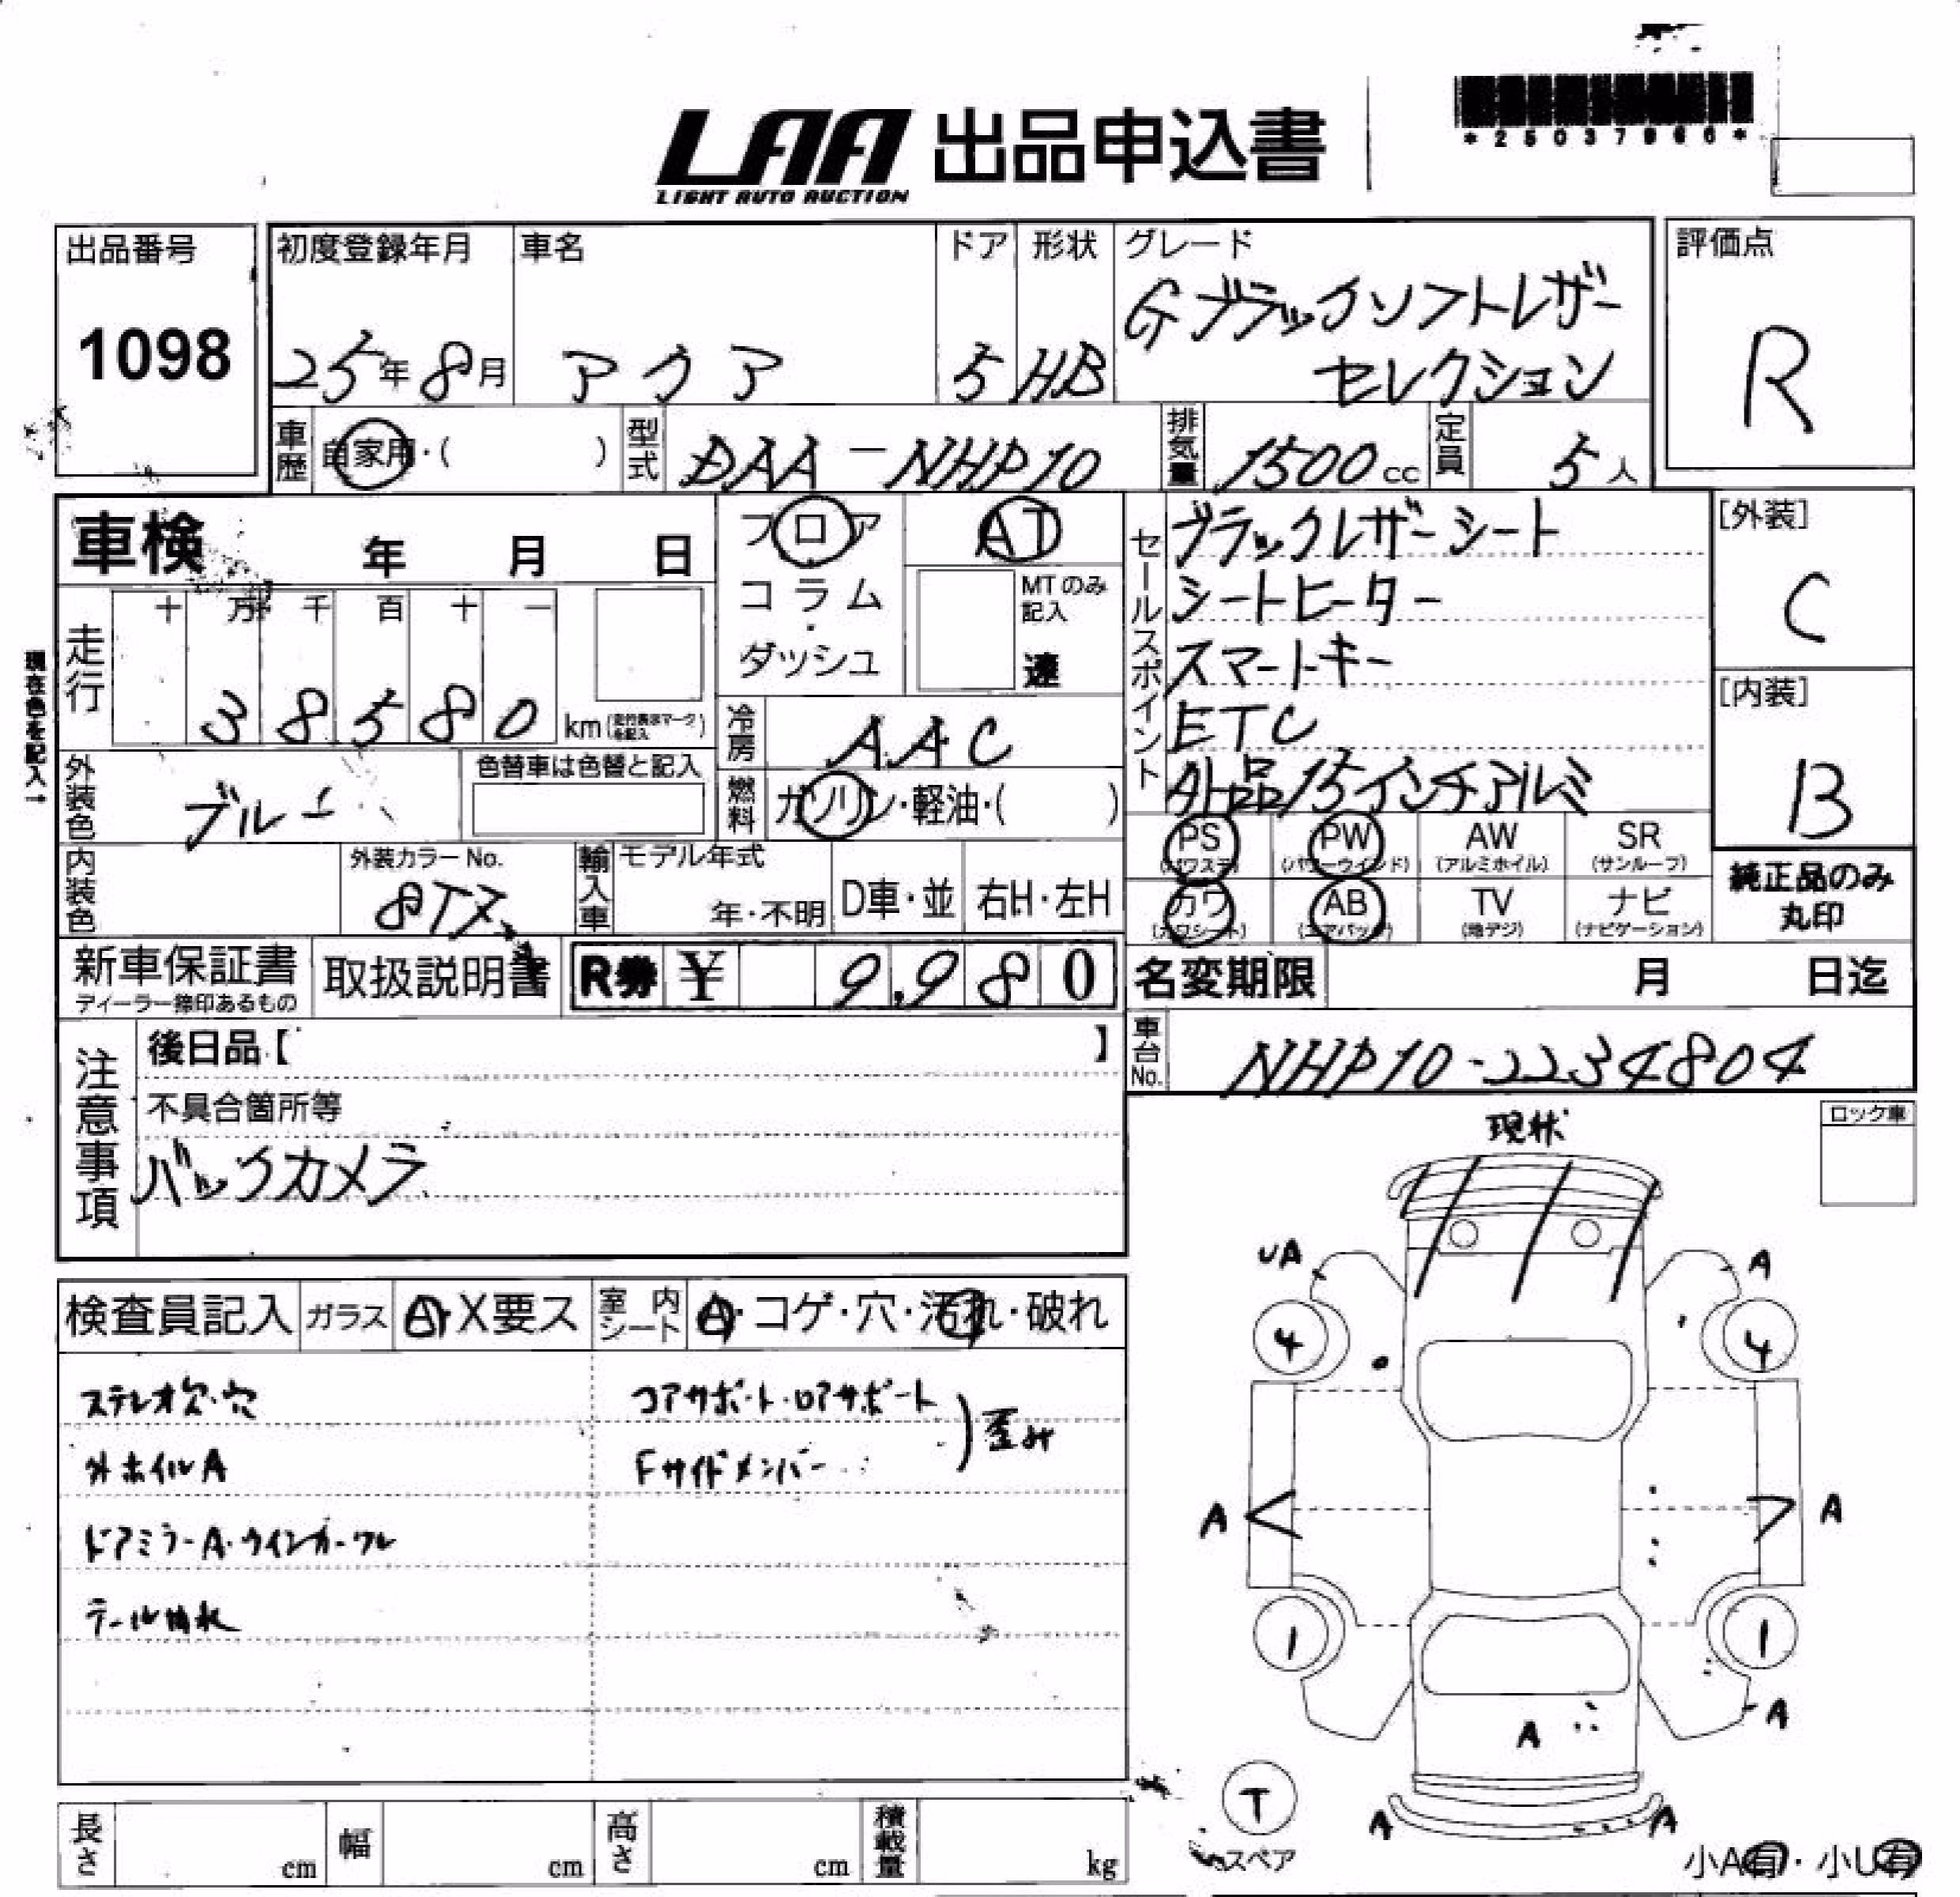 LAA 出品申込書
LIGHT AUTO AUCTION
*25037960*
出品番号
1098
初度登録年月
25年8月
車名
アクア
ドア
5
形状
HB
グレード
Gブラックソフトレザー
セレクション
評価点
R
車歴
自家用・( )
型式
DAA-NHP10
排気量
1500cc
定員
5人
車検 年 月 日
フロア
コラム
・
ダッシュ
AT
MTのみ
記入
速
セールスポイント
ブラックレザーシート
シートヒーター
スマートキー
ETC
外品15インチアルミ
[外装]
C
[内装]
B
現在色を記入→
走行
十 万 千 百 十 一
3 8 5 8 0 km
冷房
AAC
外装色
ブルー
色替車は色替と記入
燃料
ガソリン・軽油・( )
内装色
外装カラーNo.
8T7
輸入車
モデル年式
年・不明
D車・並
右H・左H
PS
(パワステ)
PW
(パワーウインド)
AW
(アルミホイル)
SR
(サンルーフ)
カワ
(カワシート)
AB
(エアバック)
TV
(地デジ)
ナビ
(ナビゲーション)
純正品のみ
丸印
新車保証書
ディーラー捺印あるもの
取扱説明書
R券 ¥ 9,980
名変期限 月 日迄
車台No.
NHP10-2234804
注意事項
後日品【 】
不具合箇所等
バックカメラ
現状
ロック車
検査員記入
ガラス
A・X要ス
室内シート
A・コゲ・穴・汚れ・破れ
ステレオ欠・穴
外ホイルA
ドアミラーA・ウインカーワレ
コアサポート・ロアサポート
Fサイドメンバー
歪み
UA
A
4
4
A
A
1
1
A
A
T
スペア
A
A
小A有・小U有
長さ cm
幅 cm
高さ cm
積載量 kg